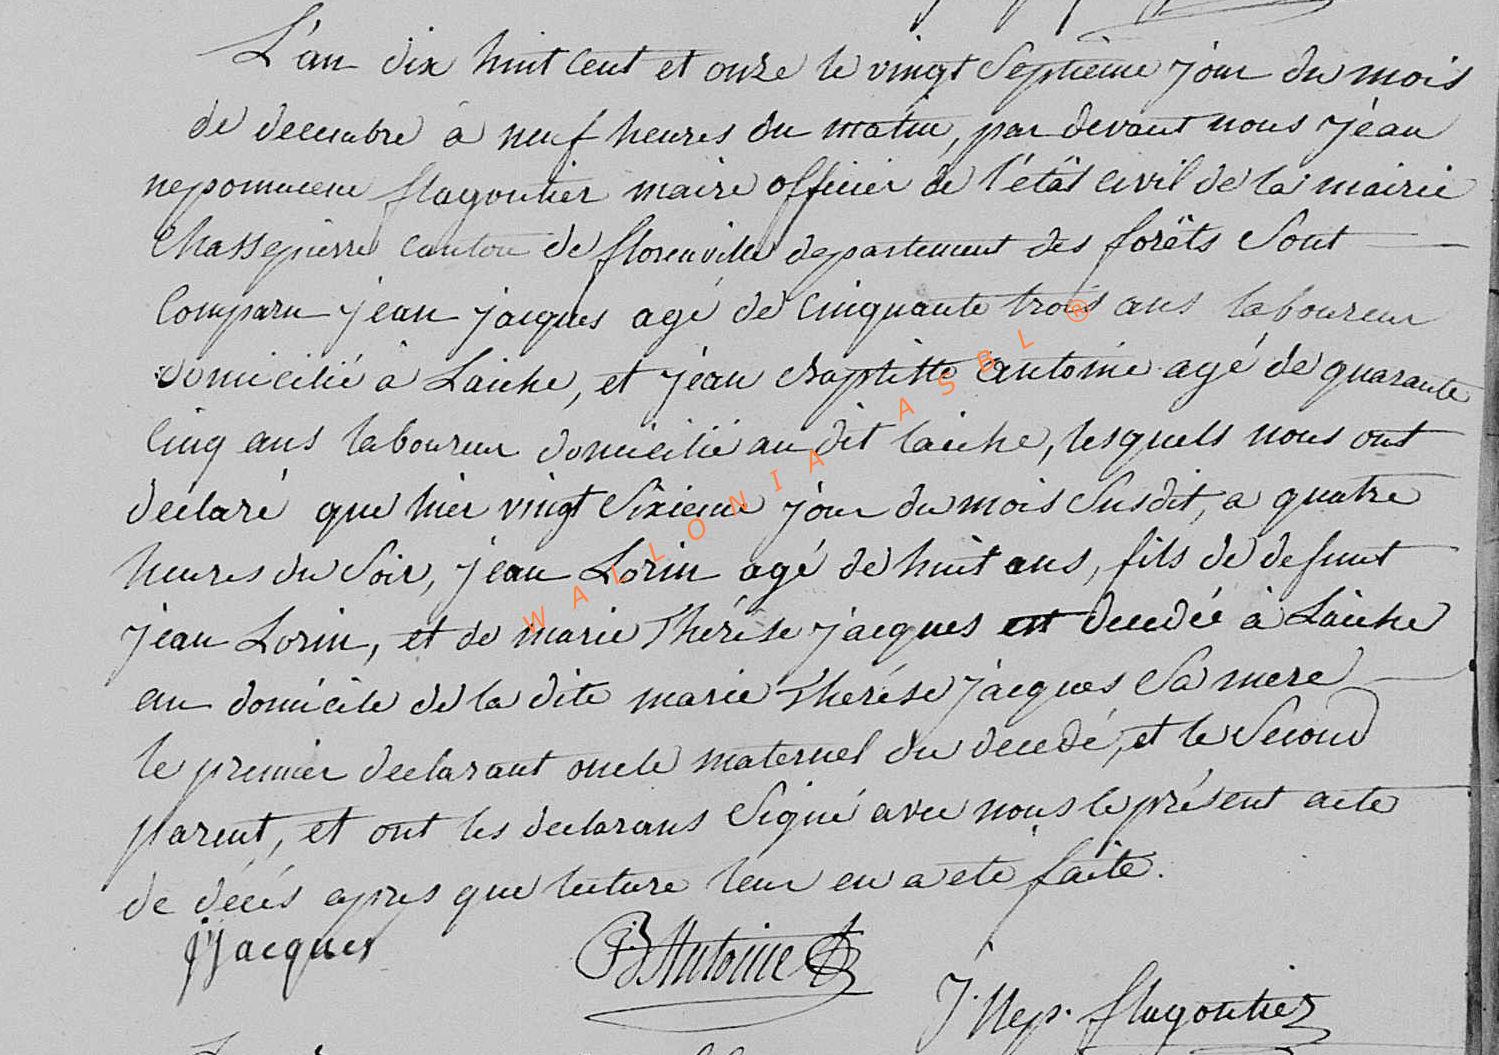 L'an dix huit cent et onze le vingt septieme jour du mois
de decembre à neuf heures du matin, par devant nous jéan
nepomucene flagontier maire officier de l'état civil de la mairie
Chassepierre canton de florenville departement des forêts sont
comparu jean jacques agé de cinquante trois ans laboureur
domicilié à Laiche, et jéan Baptiste Antoine agé de quarante
cinq ans laboureur domicilié au dit laiche, lesquels nous ont
declaré que hier vingt sixieme jour du mois susdit, a quatre
heures du soir, jean Lorin agé de huit ans, fils de defunt
jean Lorin, et de marie Thérése jacques est decedée à Laiche
au domicile de la dite marie Thérése jacques sa mere
le premier declarant oncle maternel du decedé, et le second
parent, et ont les declarans signé avec nous le présent acte
de décés apres que lecture leur en a eté faite.
jjacques
JBAntoine
J. Nep. flagontier
WALLONIA ASBL ®